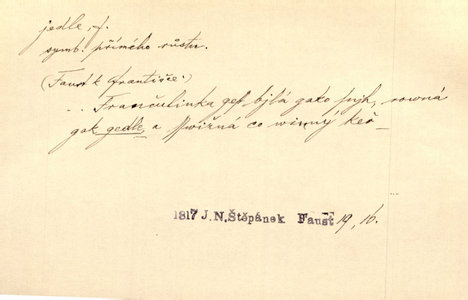 jedle, f.
symb. přímého růstu.
(Faust k Františce)
.. Frančulinka gest bjlá gako snjh, rowná
gak gedle, a swižná co winný keř –
1817 J.N.Štěpánek Faust 19, 16.